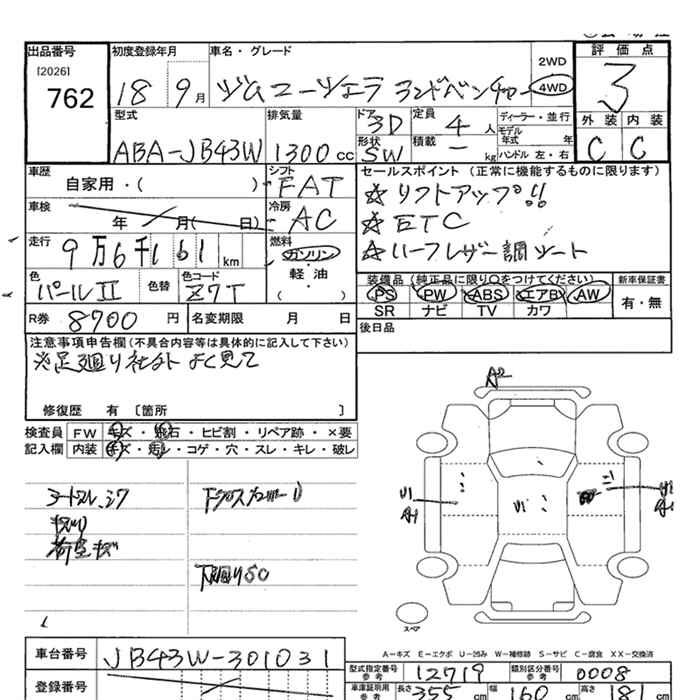 出品番号 初度登録年月 車名・グレード 2WD 4WD 評価点
[2026]
762
18 9月 ジムニーシェラ ランドベンチャー 3
型式 排気量 ドア 3D 定員 4人 ディーラー・並行 外装 内装
モデル年式 年
ABA-JB43W 1300cc 形状 SW 積載 - kg ハンドル 左・右 C C
車歴 自家用・( ) シフト FAT セールスポイント (正常に機能するものに限ります)
☆ リフトアップ!!
車検 年 月( 日) 冷房 AC ☆ ETC
走行 9万6千161km 燃料 ガソリン ☆ ハーフレザー調シート
軽・油
( ・ )
色 パールII 色替 色コード Z7T 装備品 (純正品に限り○をつけてください) 新車保証書
PS PW ABS エアB AW 有・無
SR ナビ TV カワ
R券 8700円 名変期限 月 日 後日品
注意事項申告欄(不具合内容等は具体的に記入して下さい)
※足廻り社外 よく見て
修復歴 有 [箇所 ]
検査員 FW キズ・飛石・ヒビ割・リペア跡・×要
記入欄 内装 キズ・汚レ・コゲ・穴・スレ・キレ・破レ
A2
荷室キズ
下廻りSO
U1
A1
U1
スペア
A-キズ E-エクボ U-凹み W-補修跡 S-サビ C-腐食 XX-交換済
車台番号 JB43W-301031
型式指定番号 参考 12719 類別区分番号 参考 0008
登録番号
車庫証明用 参考 長さ 355cm 幅 160cm 高さ 181cm